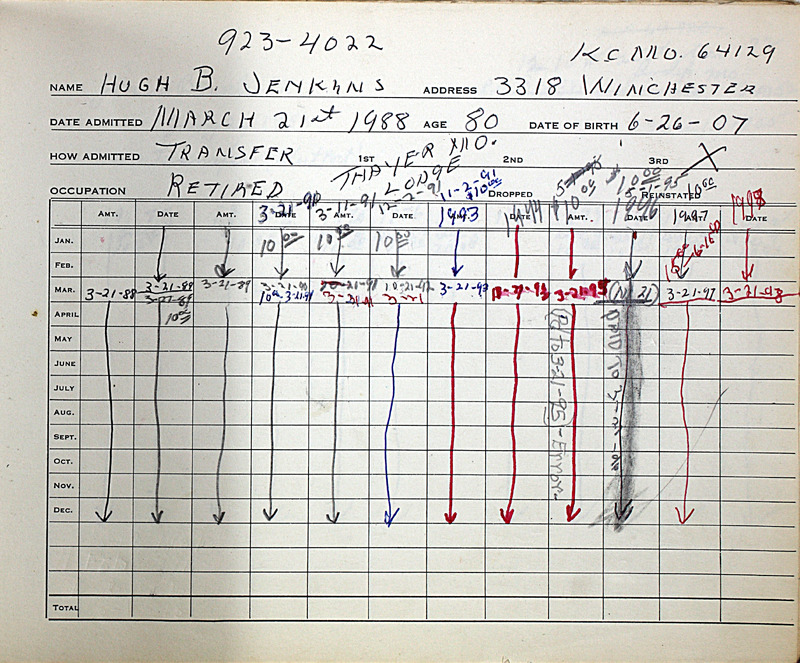 923-4022
KC MO. 64129
NAME HUGH B. JENKINS ADDRESS 3318 WINCHESTER
DATE ADMITTED MARCH 21st 1988 AGE 80 DATE OF BIRTH 6-26-07
HOW ADMITTED TRANSFER 1ST THAYER MO. 2ND 3RD X
LODGE
OCCUPATION RETIRED DROPPED REINSTATED
3-21-90 3-11-91 12-2-91 11-2-91 $10.00 5-1-95 10.00 1998
AMT. DATE AMT. DATE AMT. DATE AMT. DATE AMT. DATE AMT. DATE
1993 1994 1996 1997
JAN. 10.00 10.00 10.00
FEB.
MAR. 3-21-88 3-21-89 3-21-89 3-21-93 3-21-95 (N. 21) 3-21-97 3-21-98
3-21-89 10.00 3-21-91 3-21
APRIL 10.00
MAY
JUNE
JULY
AUG.
SEPT.
OCT.
NOV.
DEC.
TOTAL
(Pd to 3-21-95) - Error.
PAID TO